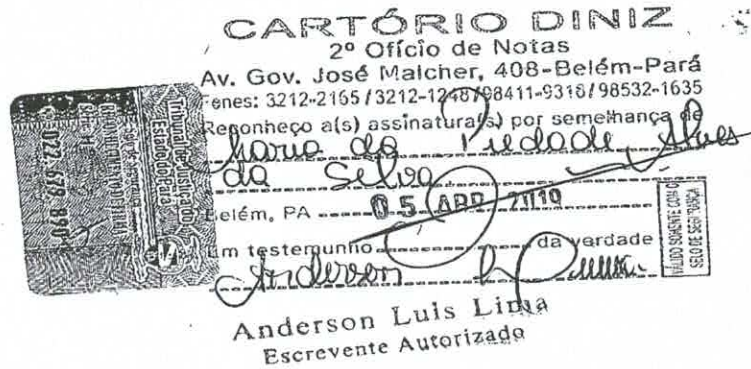 CARTÓRIO DINIZ
2º Ofício de Notas
Av. Gov. José Malcher, 408-Belém-Pará
Fones: 3212-2165/3212-1248/98411-9316/98532-1635
Reconheço a(s) assinatura(s) por semelhança de
Maria da Piedade Alves
da Silva
Belém, PA 05 ABR 2019
Em testemunho da verdade
Anderson
Anderson Luis Lima
Escrevente Autorizado
Tribunal de Justiça do
Estado do Pará
VÁLIDO SOMENTE COM O
SELO DE SEGURANÇA